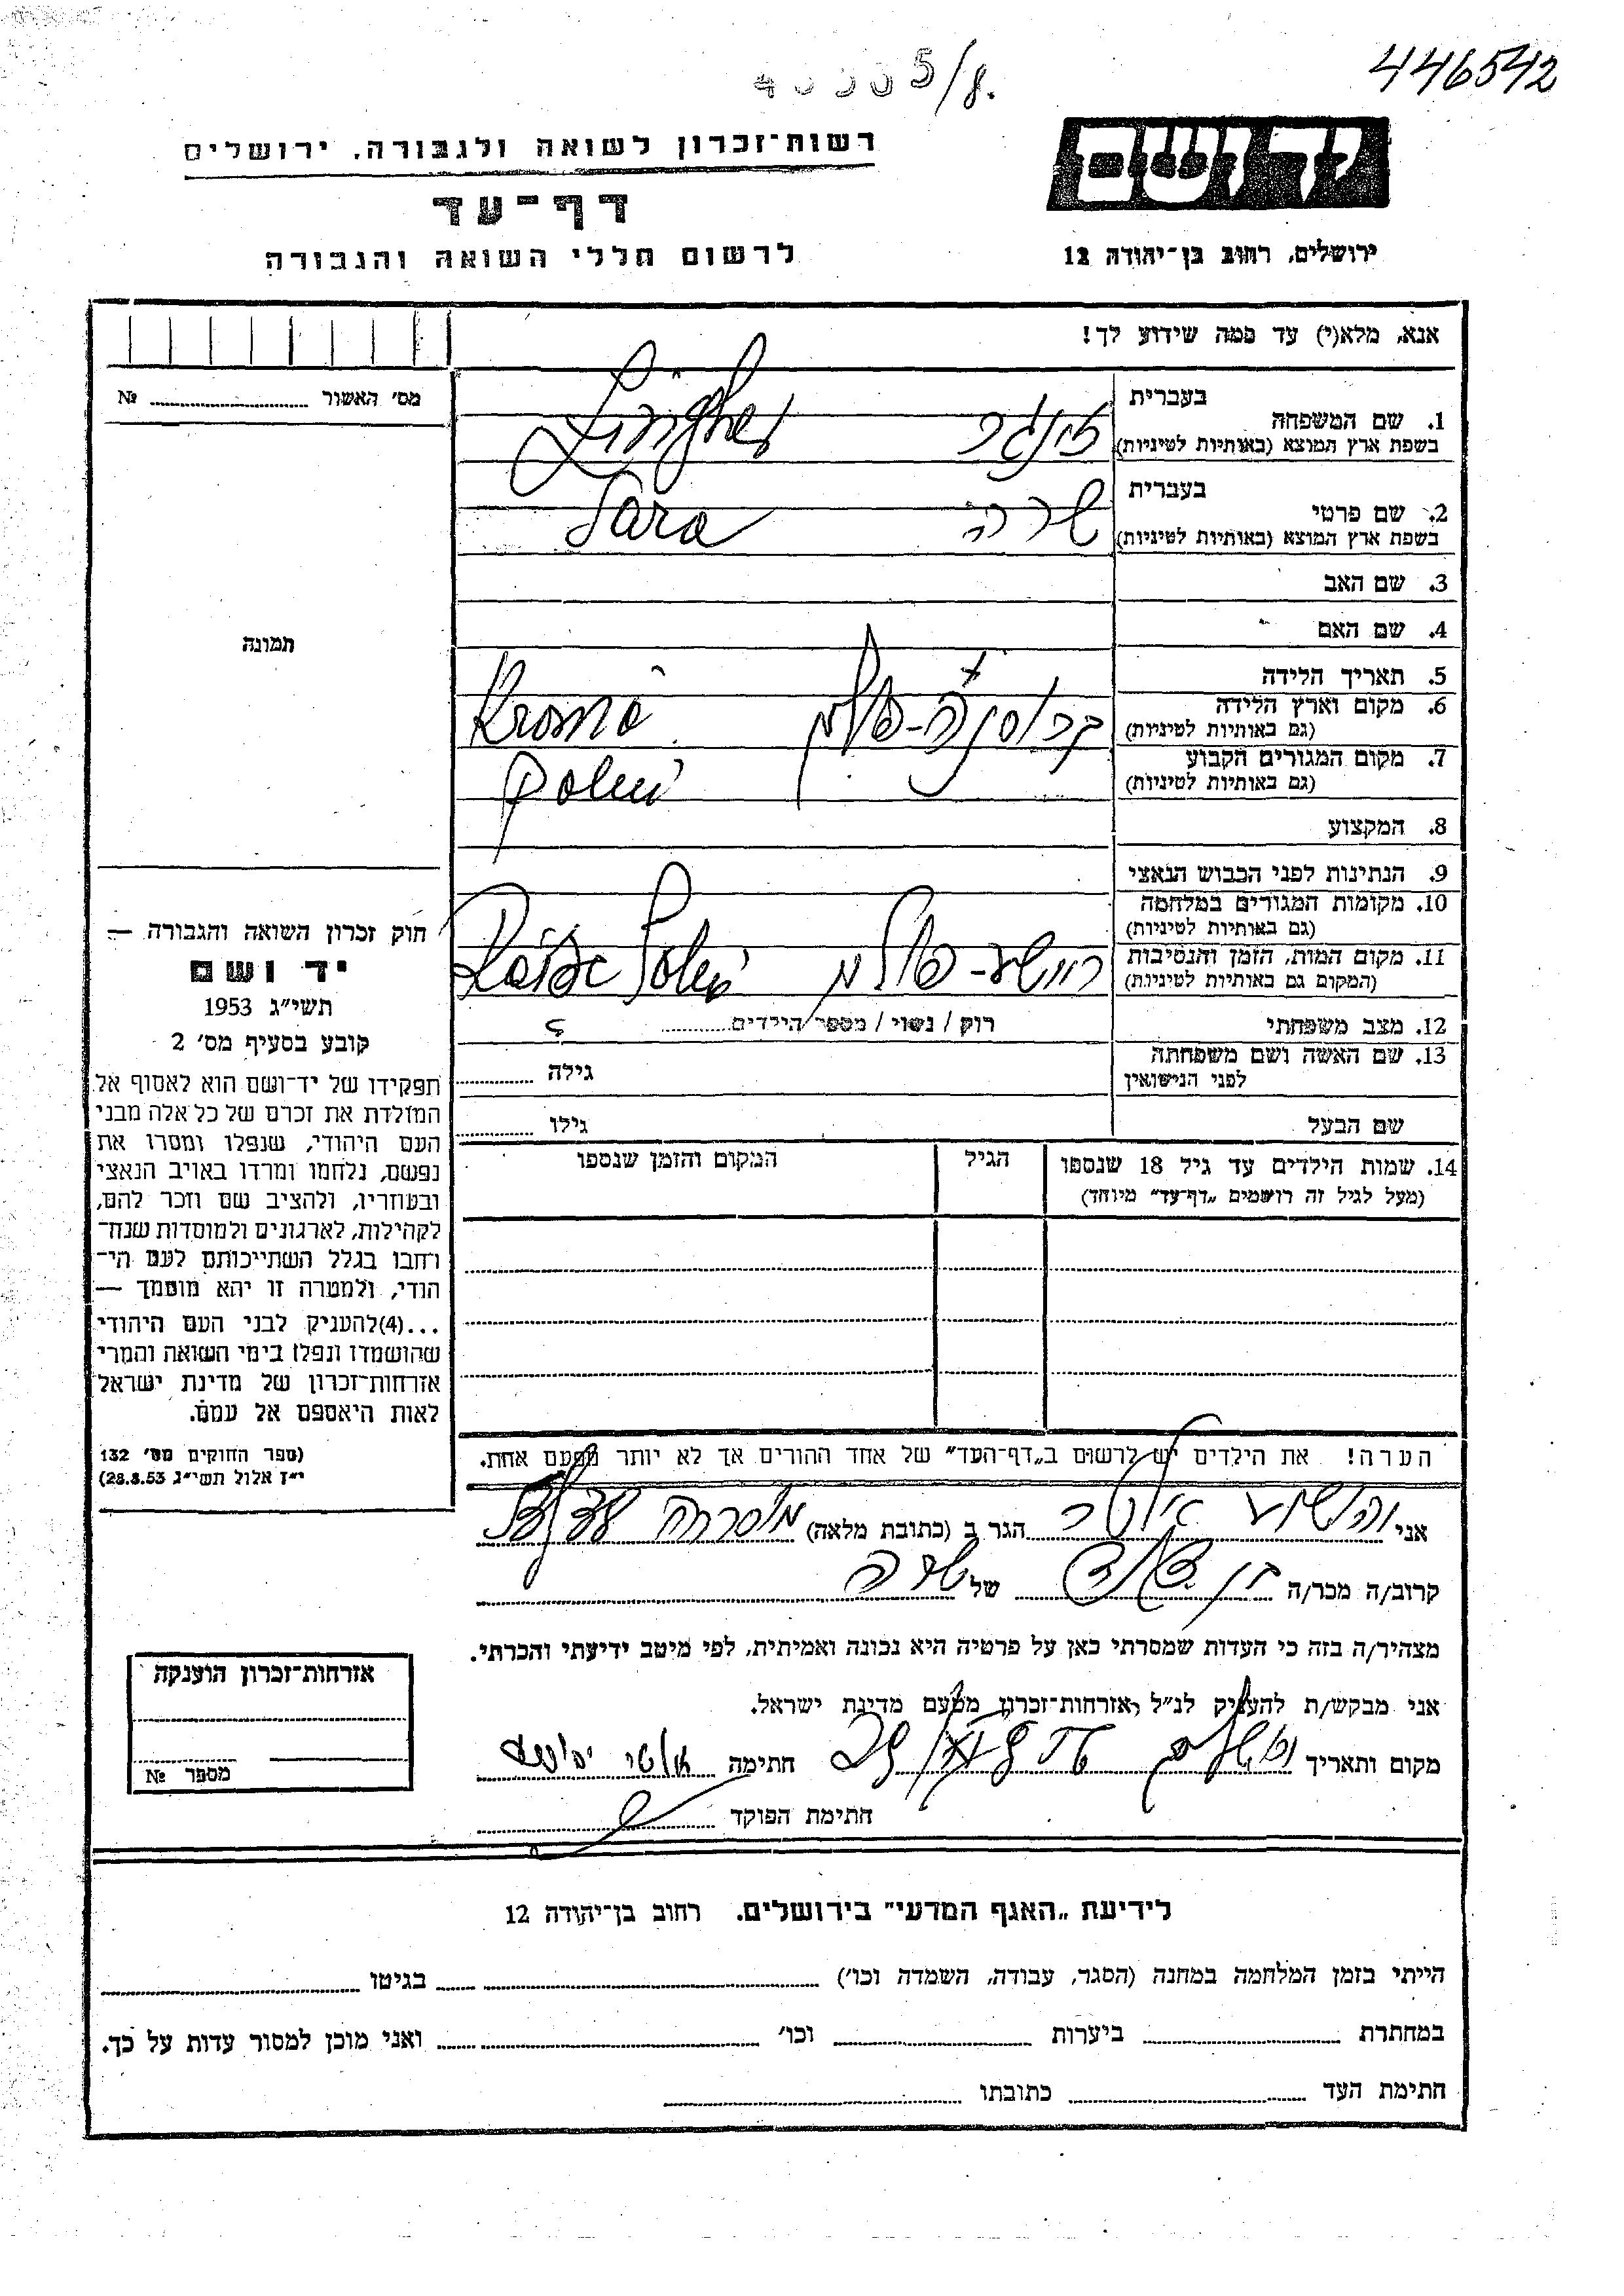 446542
5/8.
יד ושם
רשות־זכרון לשואה ולגבורה. ירושלים
דף־עד
לרשום חללי השואה והגבורה
ירושלים, רחוב בן־יהודה 12
אנא, מלא(י) עד כמה שידוע לך!
מס׳ האשור № 
בעברית
1. שם המשפחה
בשפת ארץ המוצא (באותיות לטיניות)
בעברית
2. שם פרטי שרה Sara
בשפת ארץ המוצא (באותיות לטיניות)
3. שם האב
4. שם האם
5. תאריך הלידה
6. מקום וארץ הלידה Krosno
(גם באותיות לטיניות)
7. מקום המגורים הקבוע
(גם באותיות לטיניות)
8. המקצוע
9. הנתינות לפני הכבוש הנאצי
10. מקומות המגורים במלחמה
(גם באותיות לטיניות)
11. מקום המות, הזמן והנסיבות
(המקום גם באותיות לטיניות)
12. מצב משפחתי רוק / נשוי / מספר הילדים ?
13. שם האשה ושם משפחתה גילה
לפני הנישואין
שם הבעל גילו
14. שמות הילדים עד גיל 18 שנספו הגיל המקום והזמן שנספו
(מעל לגיל זה רושמים „דף־עד״ מיוחד)
הערה! את הילדים יש לרשום ב„דף־העד״ של אחד ההורים אך לא יותר מפעם אחת.
תמונה
חוק זכרון השואה והגבורה —
יד ושם
תשי״ג 1953
קובע בסעיף מס׳ 2
תפקידו של יד־ושם הוא לאסוף אל
המולדת את זכרם של כל אלה מבני
העם היהודי, שנפלו ומסרו את
נפשם, נלחמו ומרדו באויב הנאצי
ובעוזריו, ולהציב שם וזכר להם,
לקהילות, לארגונים ולמוסדות שנח־
רחבו בגלל השתייכותם לעם הי־
הודי, ולמטרה זו יהא מוסמך —
...(4)להעניק לבני העם היהודי
שהושמדו ונפלו בימי השואה והמרי
אזרחות־זכרון של מדינת ישראל
לאות היאספם אל עמם.
(ספר החוקים מס׳ 132
י״ז אלול תשי״ג 28.8.53)
אני הגר ב (כתובת מלאה)
קרוב/ה מכר/ה בן דוד של שרה
מצהיר/ה בזה כי העדות שמסרתי כאן על פרטיה היא נכונה ואמיתית, לפי מיטב ידיעתי והכרתי.
אני מבקש/ת להעניק לנ״ל אזרחות־זכרון מטעם מדינת ישראל.
מקום ותאריך ירושלים חתימה
חתימת הפוקד
אזרחות־זכרון הוענקה
מספר №
לידיעת „האגף המדעי״ בירושלים. רחוב בן־יהודה 12
הייתי בזמן המלחמה במחנה (הסגר, עבודה, השמדה וכו׳) בגיטו
במחתרת ביערות וכו׳ ואני מוכן למסור עדות על כך.
חתימת העד כתובתו